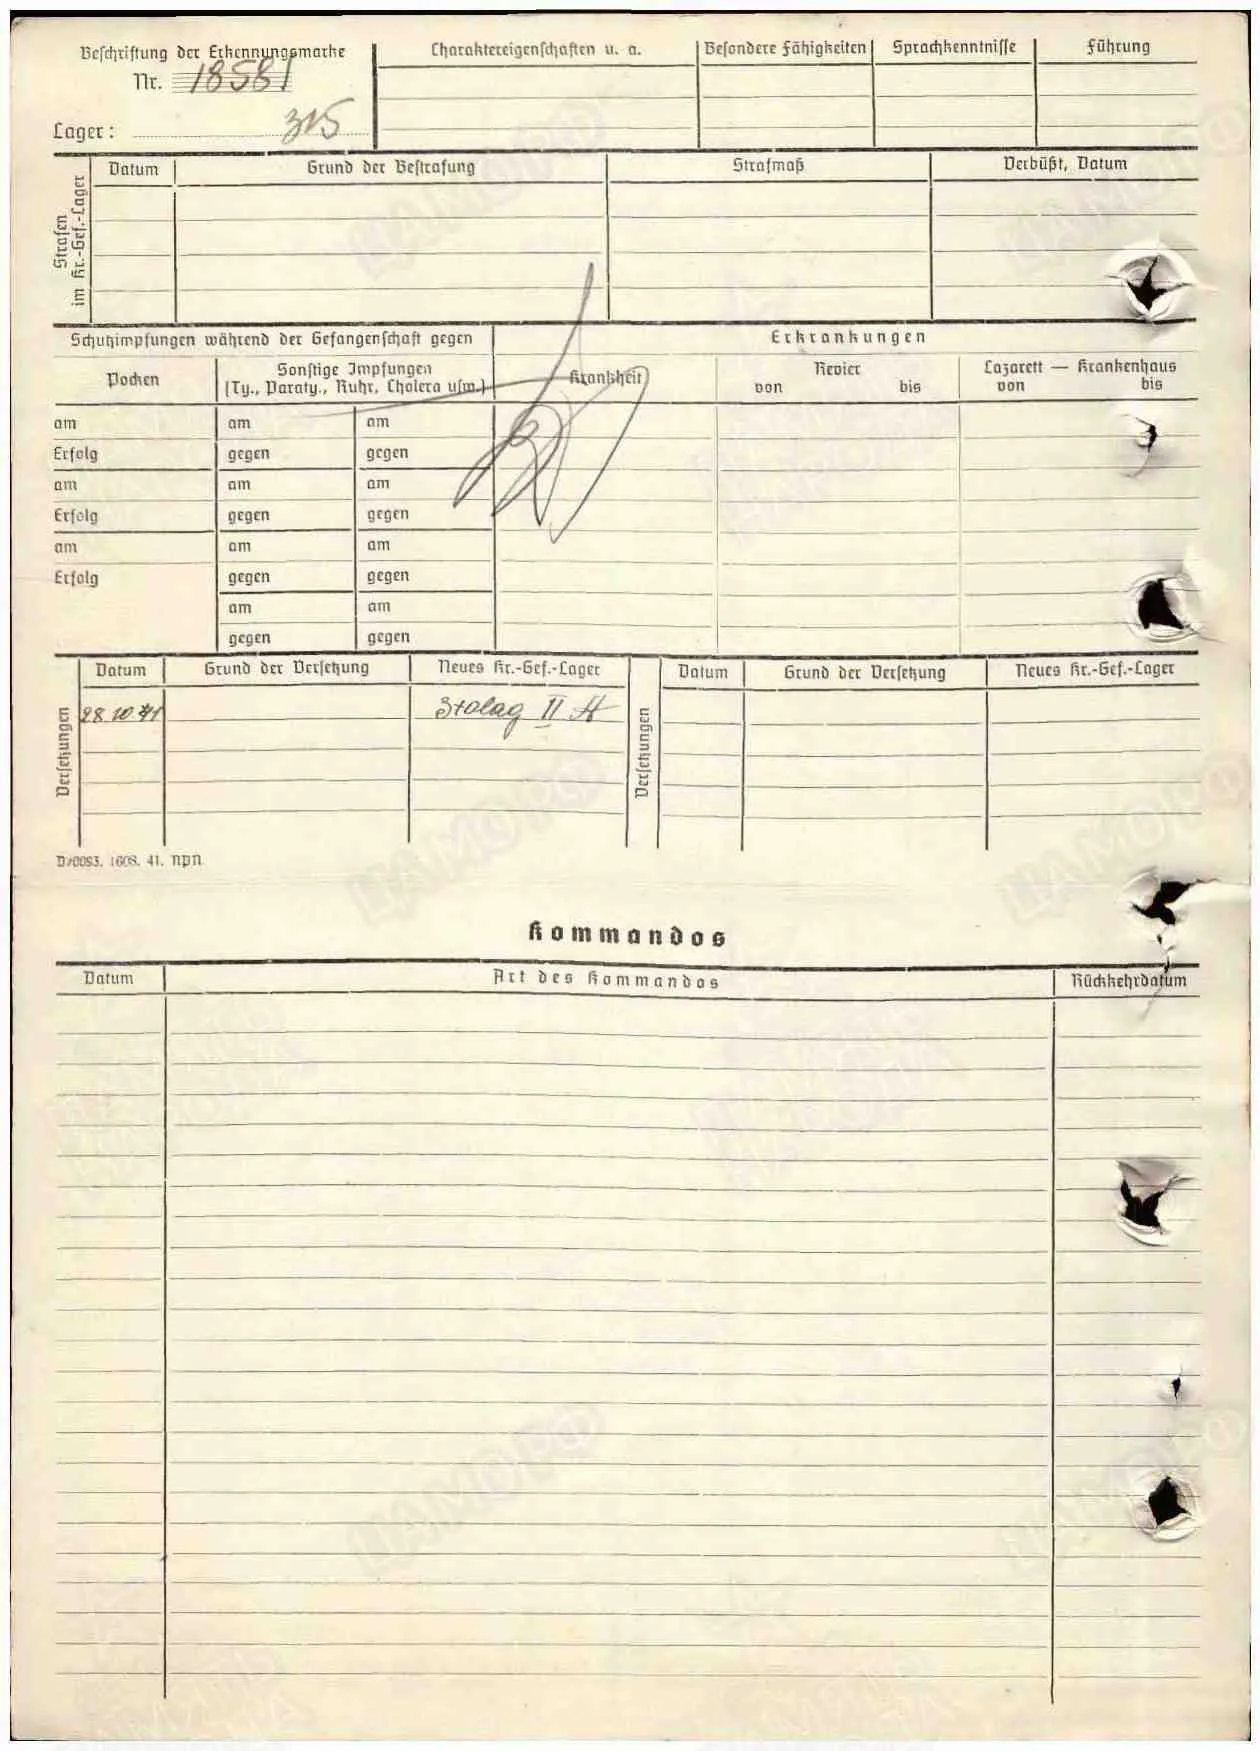 Beschriftung der Erkennungsmarke
Nr. 18581
Lager: 315
Charaktereigenschaften u. a.
Besondere Fähigkeiten
Sprachkenntnisse
Führung
Strafen
im Kr.-Gef.-Lager
Datum
Grund der Bestrafung
Strafmaß
Verbüßt, Datum
Schutzimpfungen während der Gefangenschaft gegen
Erkrankungen
Pocken
Sonstige Impfungen
(Ty., Paraty., Ruhr, Cholera usw.)
Krankheit
Revier
von bis
Lazarett — Krankenhaus
von bis
am am am
Erfolg gegen gegen
am am am
Erfolg gegen gegen
am am am
Erfolg gegen gegen
am am
gegen gegen
Versetzungen
Datum
Grund der Versetzung
Neues Kr.-Gef.-Lager
28.10.41 Stalag II A
Versetzungen
Datum
Grund der Versetzung
Neues Kr.-Gef.-Lager
Kommandos
Datum
Art des Kommandos
Rückkehrdatum
ЦАМО РФ
ЦАМО РФ
ЦАМО РФ
ЦАМО РФ
ЦАМО РФ
ЦАМО РФ